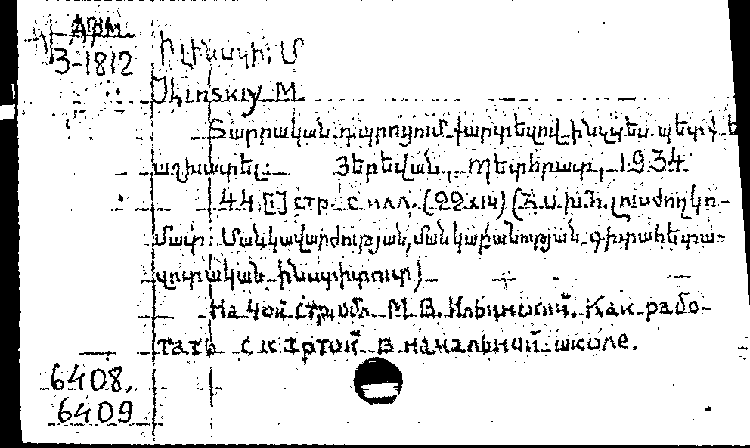 Арм.
3-1812
Իլինսկի: Մ
Ilinskiy M.
Տարրական դպրոցում քարտեզով ինչպես պետք է
աշխատել: Յերեվան, Պետհրատ, 1934
44 [1] стр. с илл. (22х14) (Հ.Ս.Խ.Հ. լուսժողկո-
մատ: Մանկավարժության, մանկաբանության գիտահետա-
զոտական ինստիտուտ)
На 4ой стр. обл. М. В. Ильинский. Как рабо-
тать с картой в начальной школе.
6408,
6409